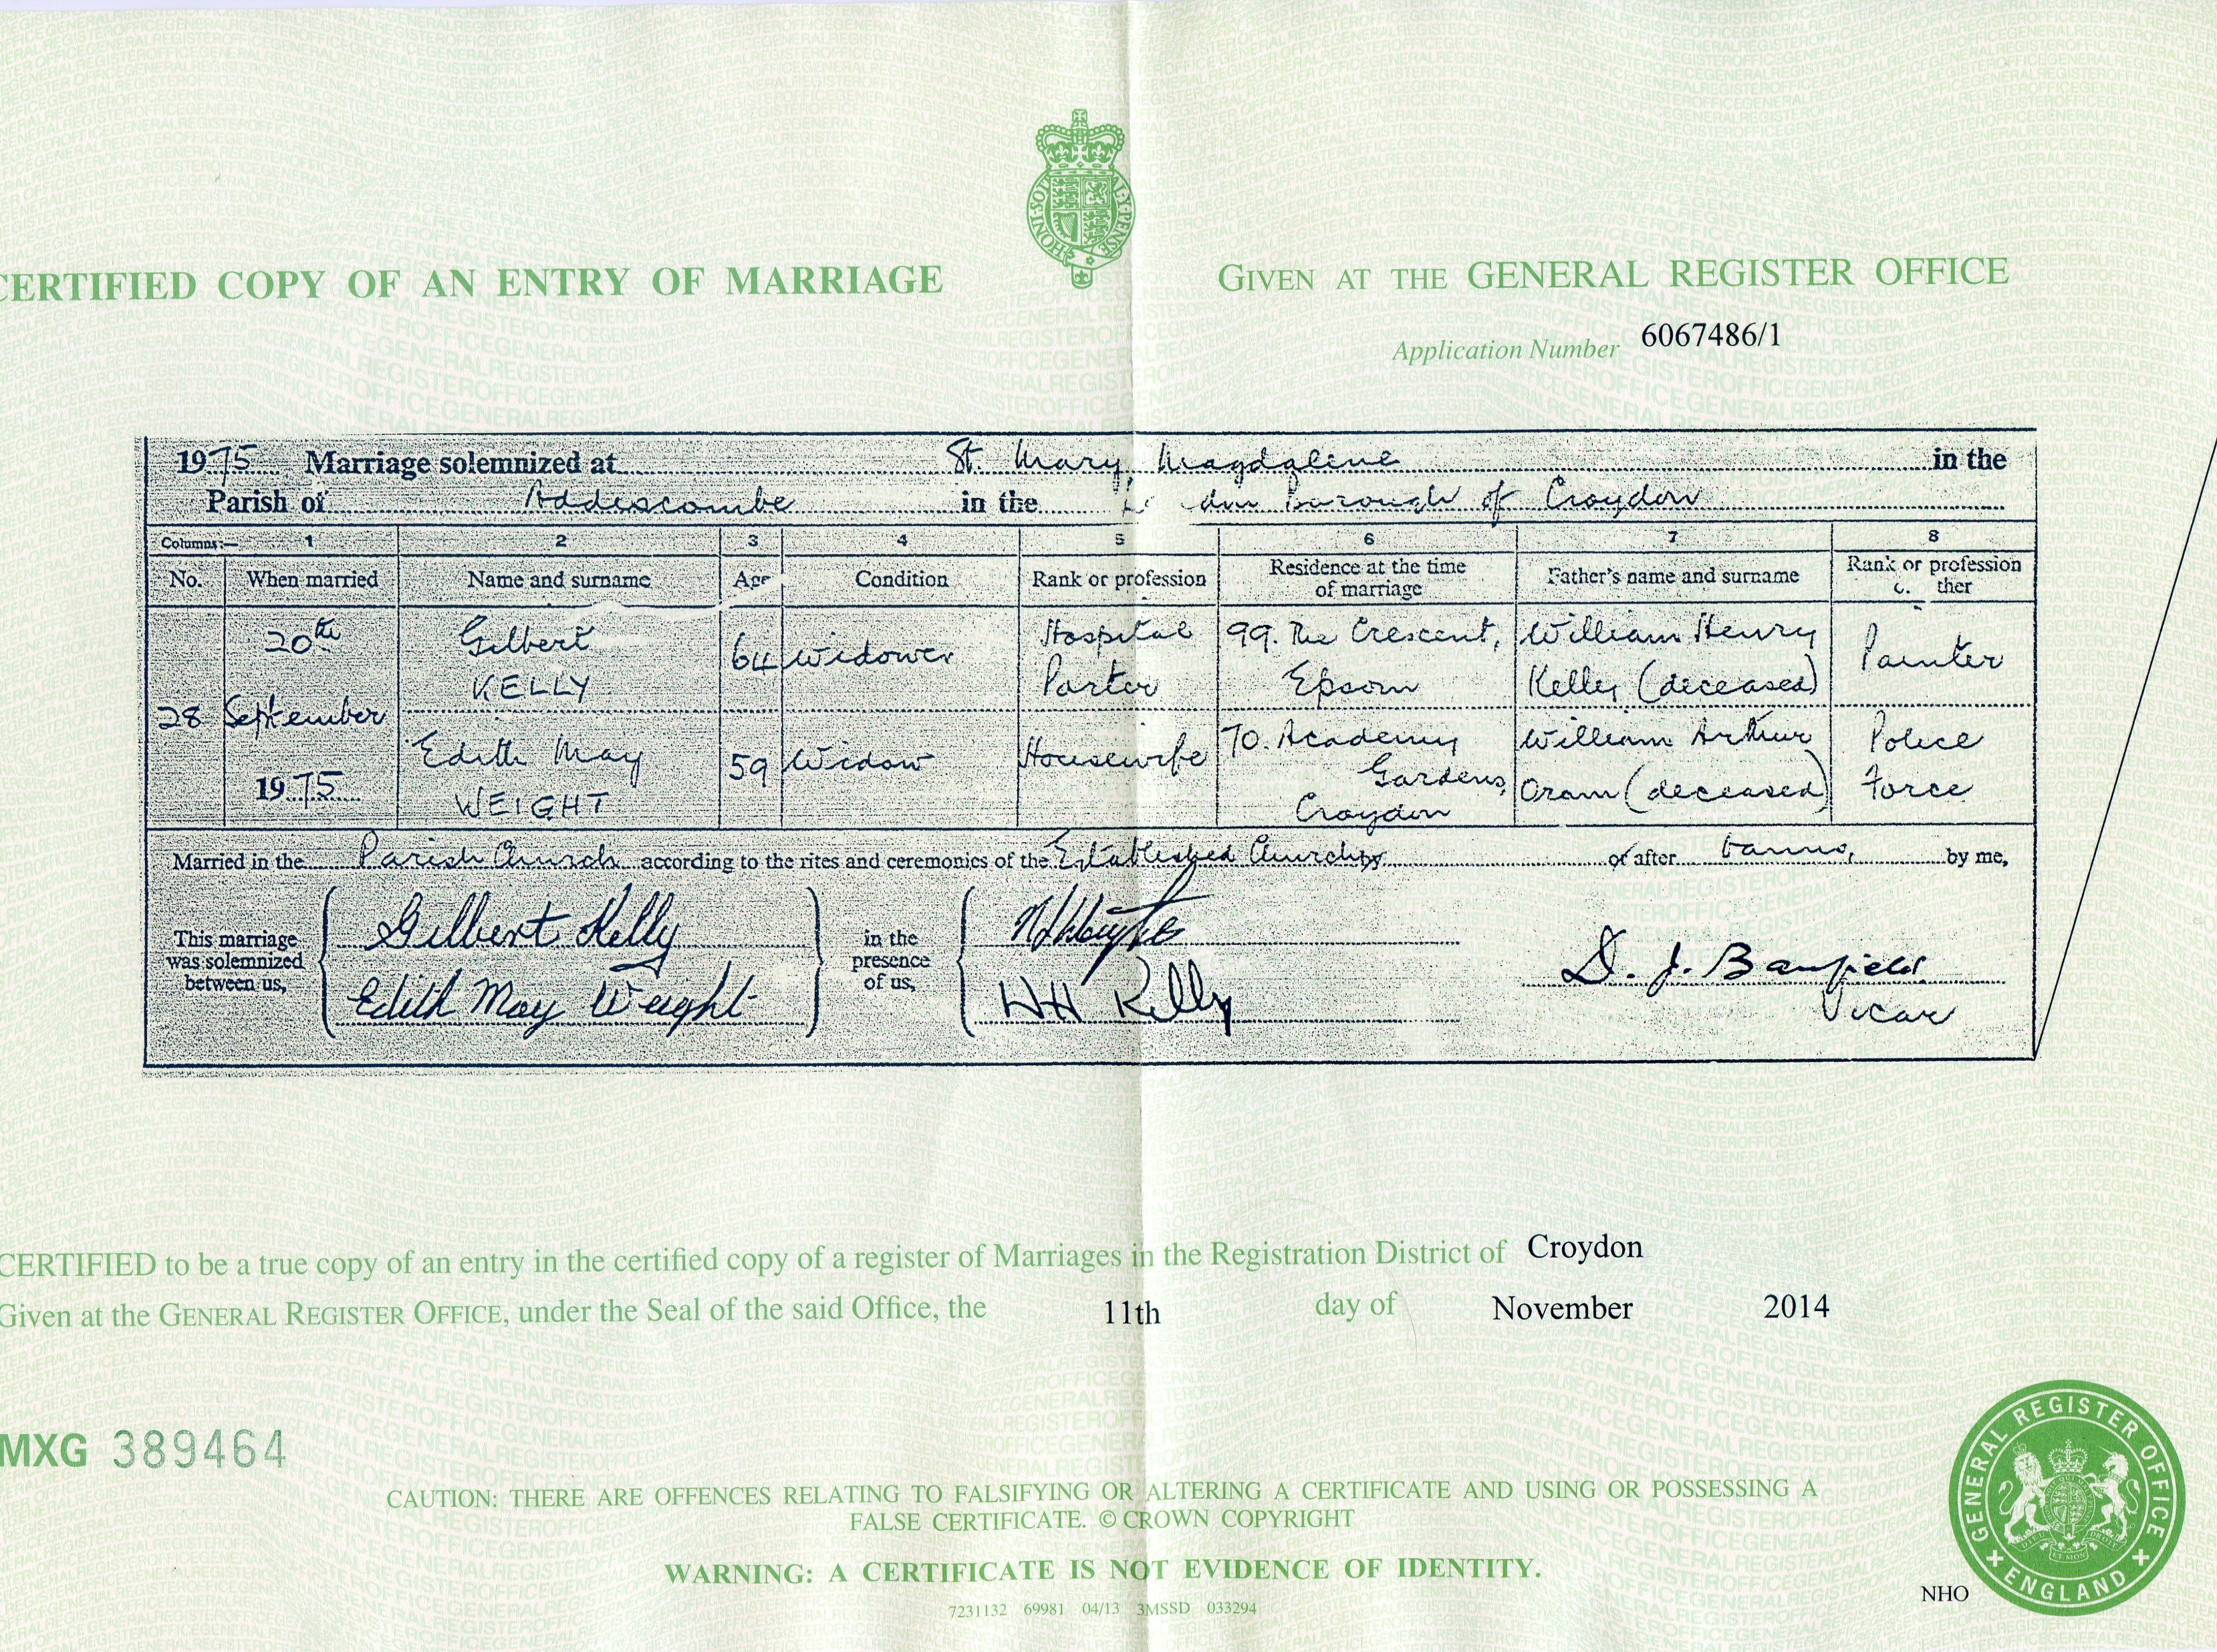 CERTIFIED COPY OF AN ENTRY OF MARRIAGE
GIVEN AT THE GENERAL REGISTER OFFICE
Application Number 6067486/1
HONI·SOIT Y·PENSE
1975 Marriage solemnized at St. Mary Magdalene in the
Parish of Addescombe in the Borough of Croydon
Columns:— 1 2 3 4 5 6 7 8
No. When married Name and surname Age Condition Rank or profession Residence at the time of marriage Father's name and surname Rank or profession
28 20th September 1975
Gilbert KELLY 64 Widower Hospital Porter 99. The Crescent, Epsom William Henry Kelly (deceased) Painter
Edith May WEIGHT 59 Widow Housewife 70. Academy Gardens, Croydon William Arthur Oram (deceased) Police Force
Married in the Parish Church according to the rites and ceremonies of the Established Church by or after banns, by me,
This marriage was solemnized between us, Gilbert Kelly
Edith May Weight
in the presence of us,
WH Kelly
D. J. Banfield
Vicar
CERTIFIED to be a true copy of an entry in the certified copy of a register of Marriages in the Registration District of Croydon
Given at the GENERAL REGISTER OFFICE, under the Seal of the said Office, the 11th day of November 2014
MXG 389464
CAUTION: THERE ARE OFFENCES RELATING TO FALSIFYING OR ALTERING A CERTIFICATE AND USING OR POSSESSING A
FALSE CERTIFICATE. © CROWN COPYRIGHT
WARNING: A CERTIFICATE IS NOT EVIDENCE OF IDENTITY.
7231132 69981 04/13 3MSSD 033294
NHO
GENERAL REGISTER OFFICE
ENGLAND